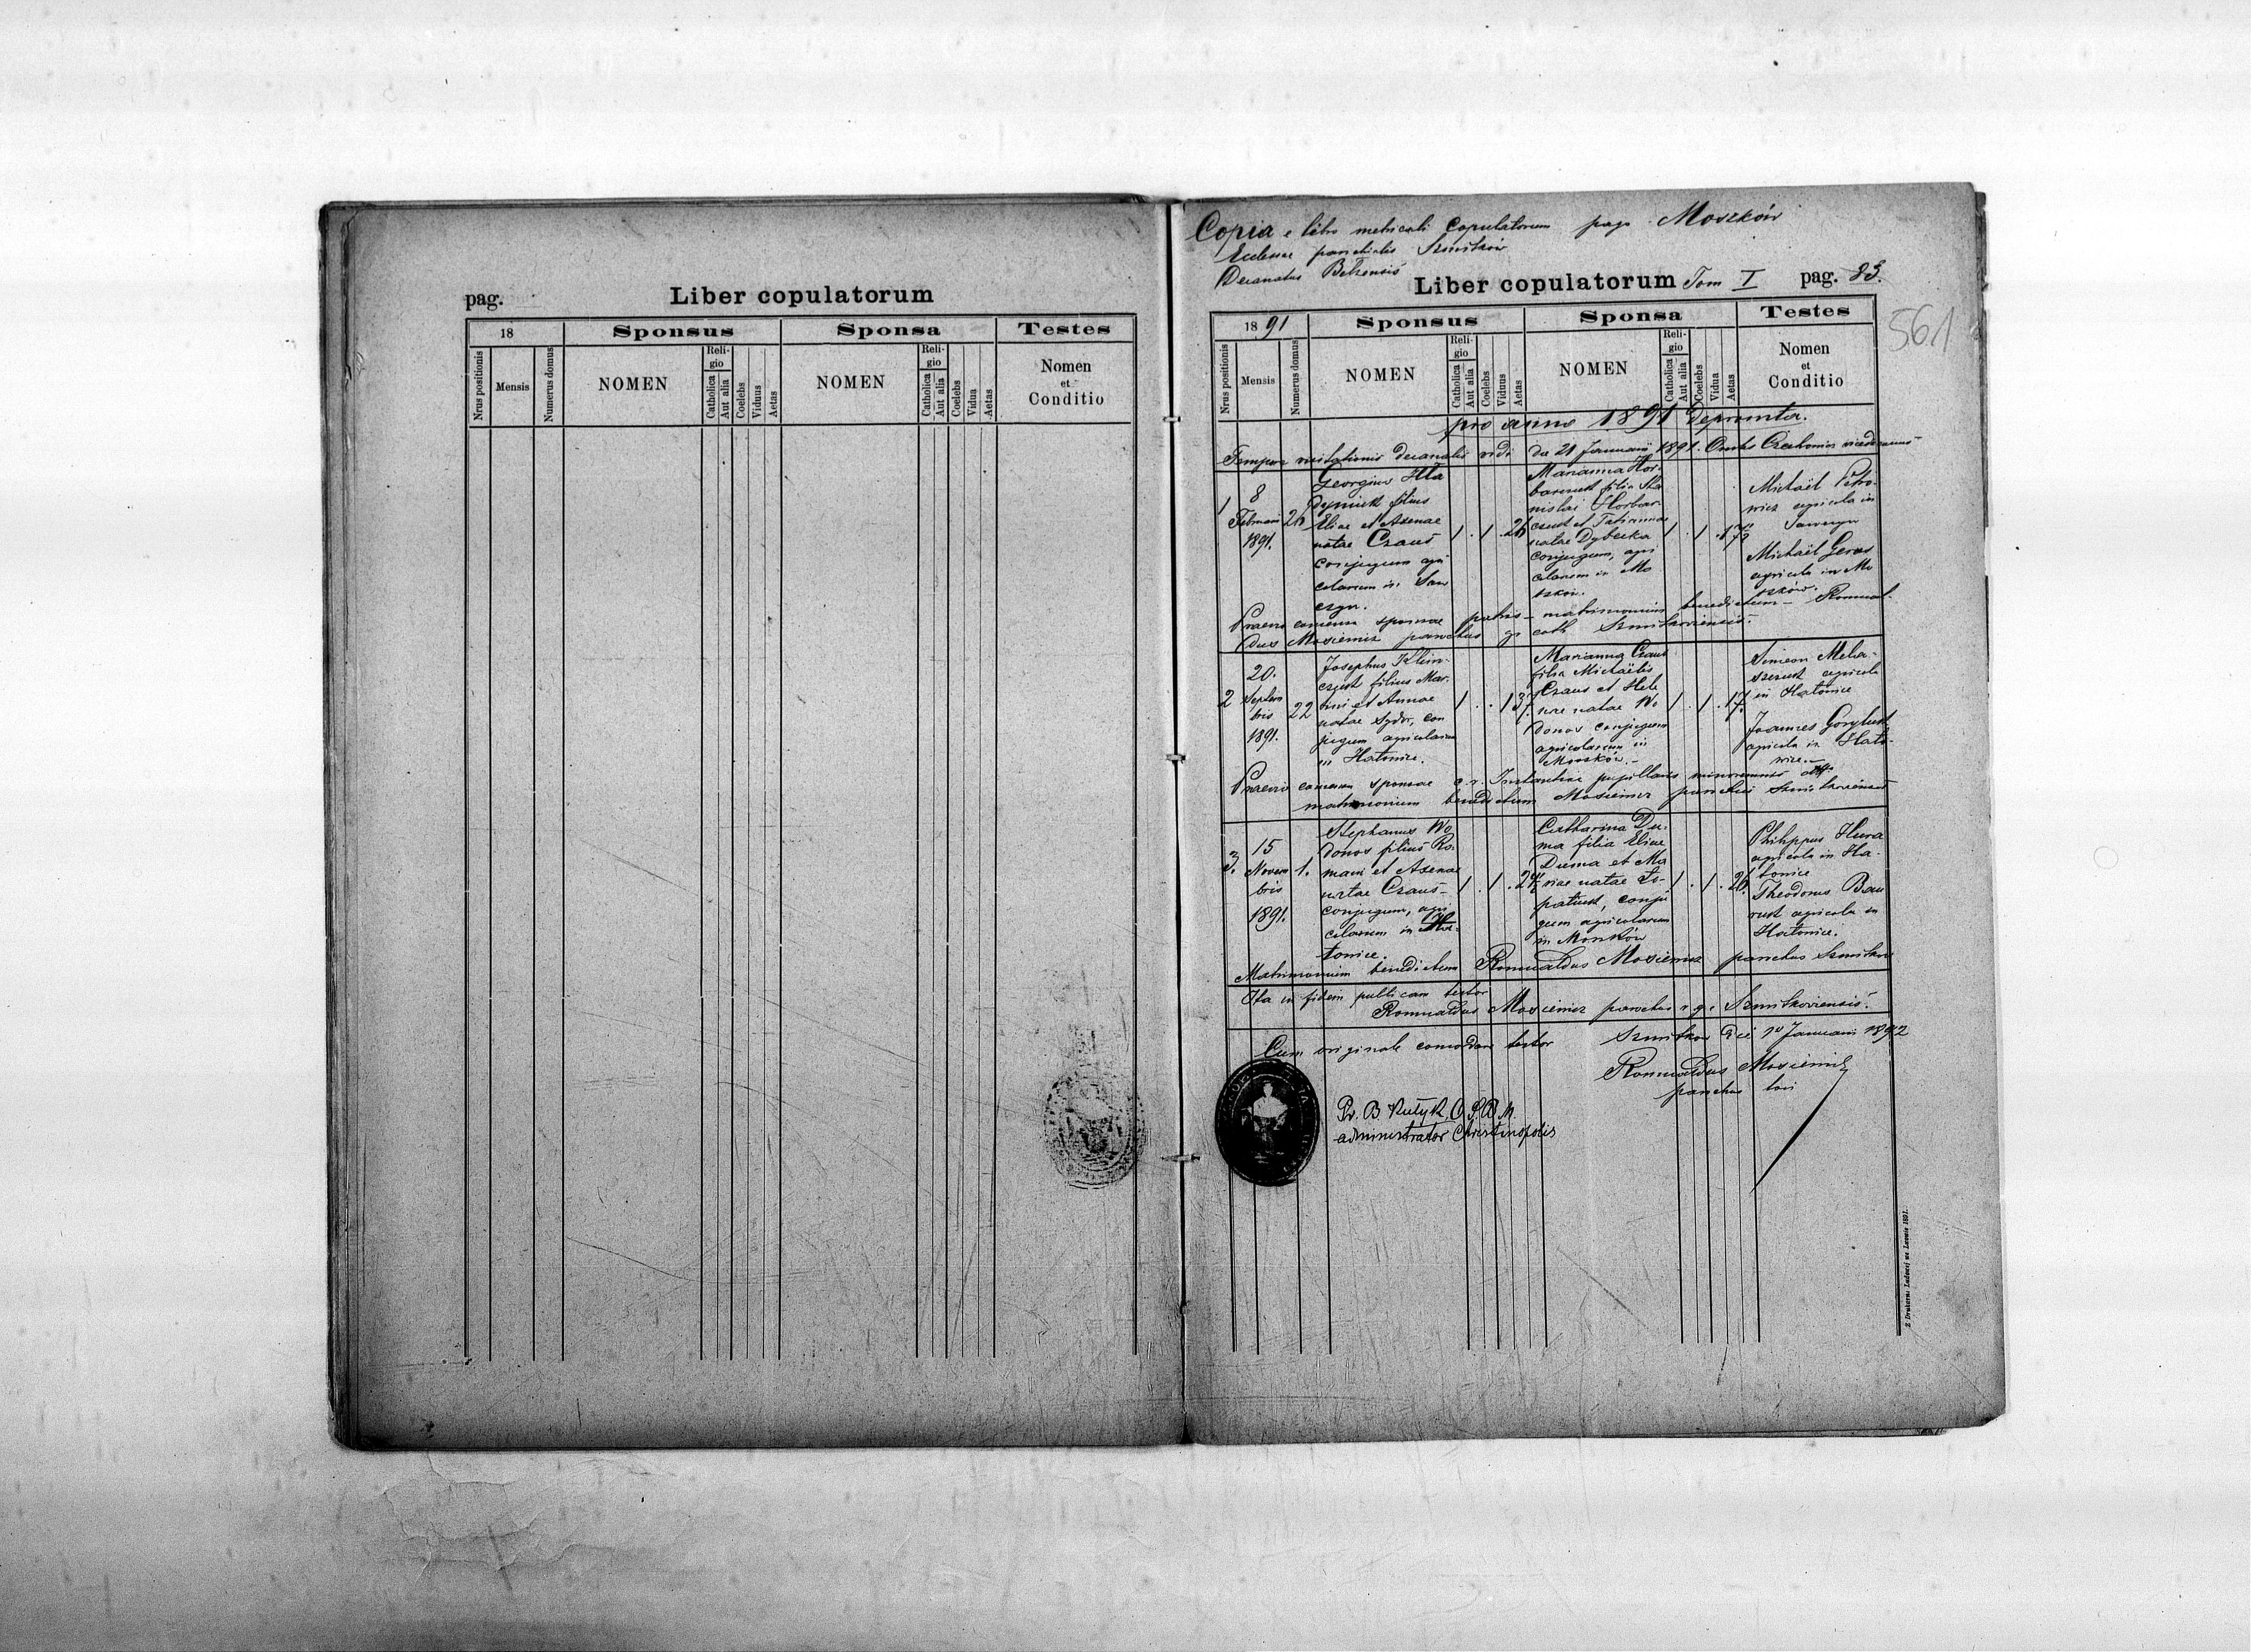 pag.
Liber copulatorum
18
Sponsus
Sponsa
Testes
Nrus positionis
Mensis
Numerus domus
NOMEN
Reli-
gio
Catholica
Aut alia
Coelebs
Viduus
Aetas
NOMEN
Reli-
gio
Catholica
Aut alia
Coelebs
Vidua
Aetas
Nomen
et
Conditio
Copia e libro metricali Copulatorum pago Moszków
Ecclesiae parochialis Szmitków
Decanatus Belzensis
Liber copulatorum Tom I pag. 83.
561
18 91
Sponsus
Sponsa
Testes
Nrus positionis
Mensis
Numerus domus
NOMEN
Reli-
gio
Catholica
Aut alia
Coelebs
Viduus
Aetas
NOMEN
Reli-
gio
Catholica
Aut alia
Coelebs
Vidua
Aetas
Nomen
et
Conditio
pro anno 1891 deprompta.
Tempore visitationis decanalis vidi die 21 Januarii 1891.
1
8
Februarii
1891.
26
Georgius Hla
dyniuk filius
Eliae et Axenae
natae Czaus
conjugum agri
colarum in Saw
czyn.
1 . 1 . 26
Marianna Hor-
barczuk filia Sta
nislai Horbar
czuk et Tatiannae
natae Dybecka
conjugum, agri
colarum in Mo
szków.
1 . 1 . 17
Michaël Petro-
wicz agricola in
Sawczyn
Michaël Geras
agricola in Mo
szków.
Praevio consensu sponsae patris - matrimonium benedictum - Romual-
dus Mosiewicz parochus gr cath Szmitkoviensis.
2
20.
Septem
bris
1891.
22
Josephus Klim-
czuk filius Mar-
tini et Annae
natae Sydor, con
jugum agricolarum
in Hatowice.
1 . . 1 37.
Marianna Czaus
filia Michaëlis
Czaus et Hele
nae natae Wo
donos conjugum
agricolarum in
Moszków.-
1 . 1 . 17.
Simeon Mela-
szczuk agricola
in Hatowice
Joannes
agricola in Hato-
wice.-
Praevio consensu sponsae c. r. Instantiae pupillaris minorennis
matrimonium benedictum Mosiewicz parochus Szmitkoviensis
3.
15
Novem
bris
1891.
1.
Stephanus Wo
donos filius Ro-
mani et Axenae
natae Czaus-
conjugum, agri
colarum in Ha-
towice.
1 . 1 . 24
Catharina Du-
ma filia Eliae
Duma et Ma
riae natae
conju
gum agricolarum
in Moszków
1 . 1 . 26
Philippus Hura
agricola in Ha-
towice
Theodorus
agricola in
Hatowice.
Matrimonium benedictum Romualdus Mosiewicz parochus Szmitkow
Ita in fidem publicam testor
Romualdus Mosiewicz parochus r. g. Szmitkoviensis.
Cum originale concordare testor
Szmitkow die 1º Januarii 1892
Romualdus Mosiewicz
parochus loci
Pr. B. Kutyk, O. S. B. M.
administrator Christinopolis
Z Drukarni Ludowej we Lwowie 1891.